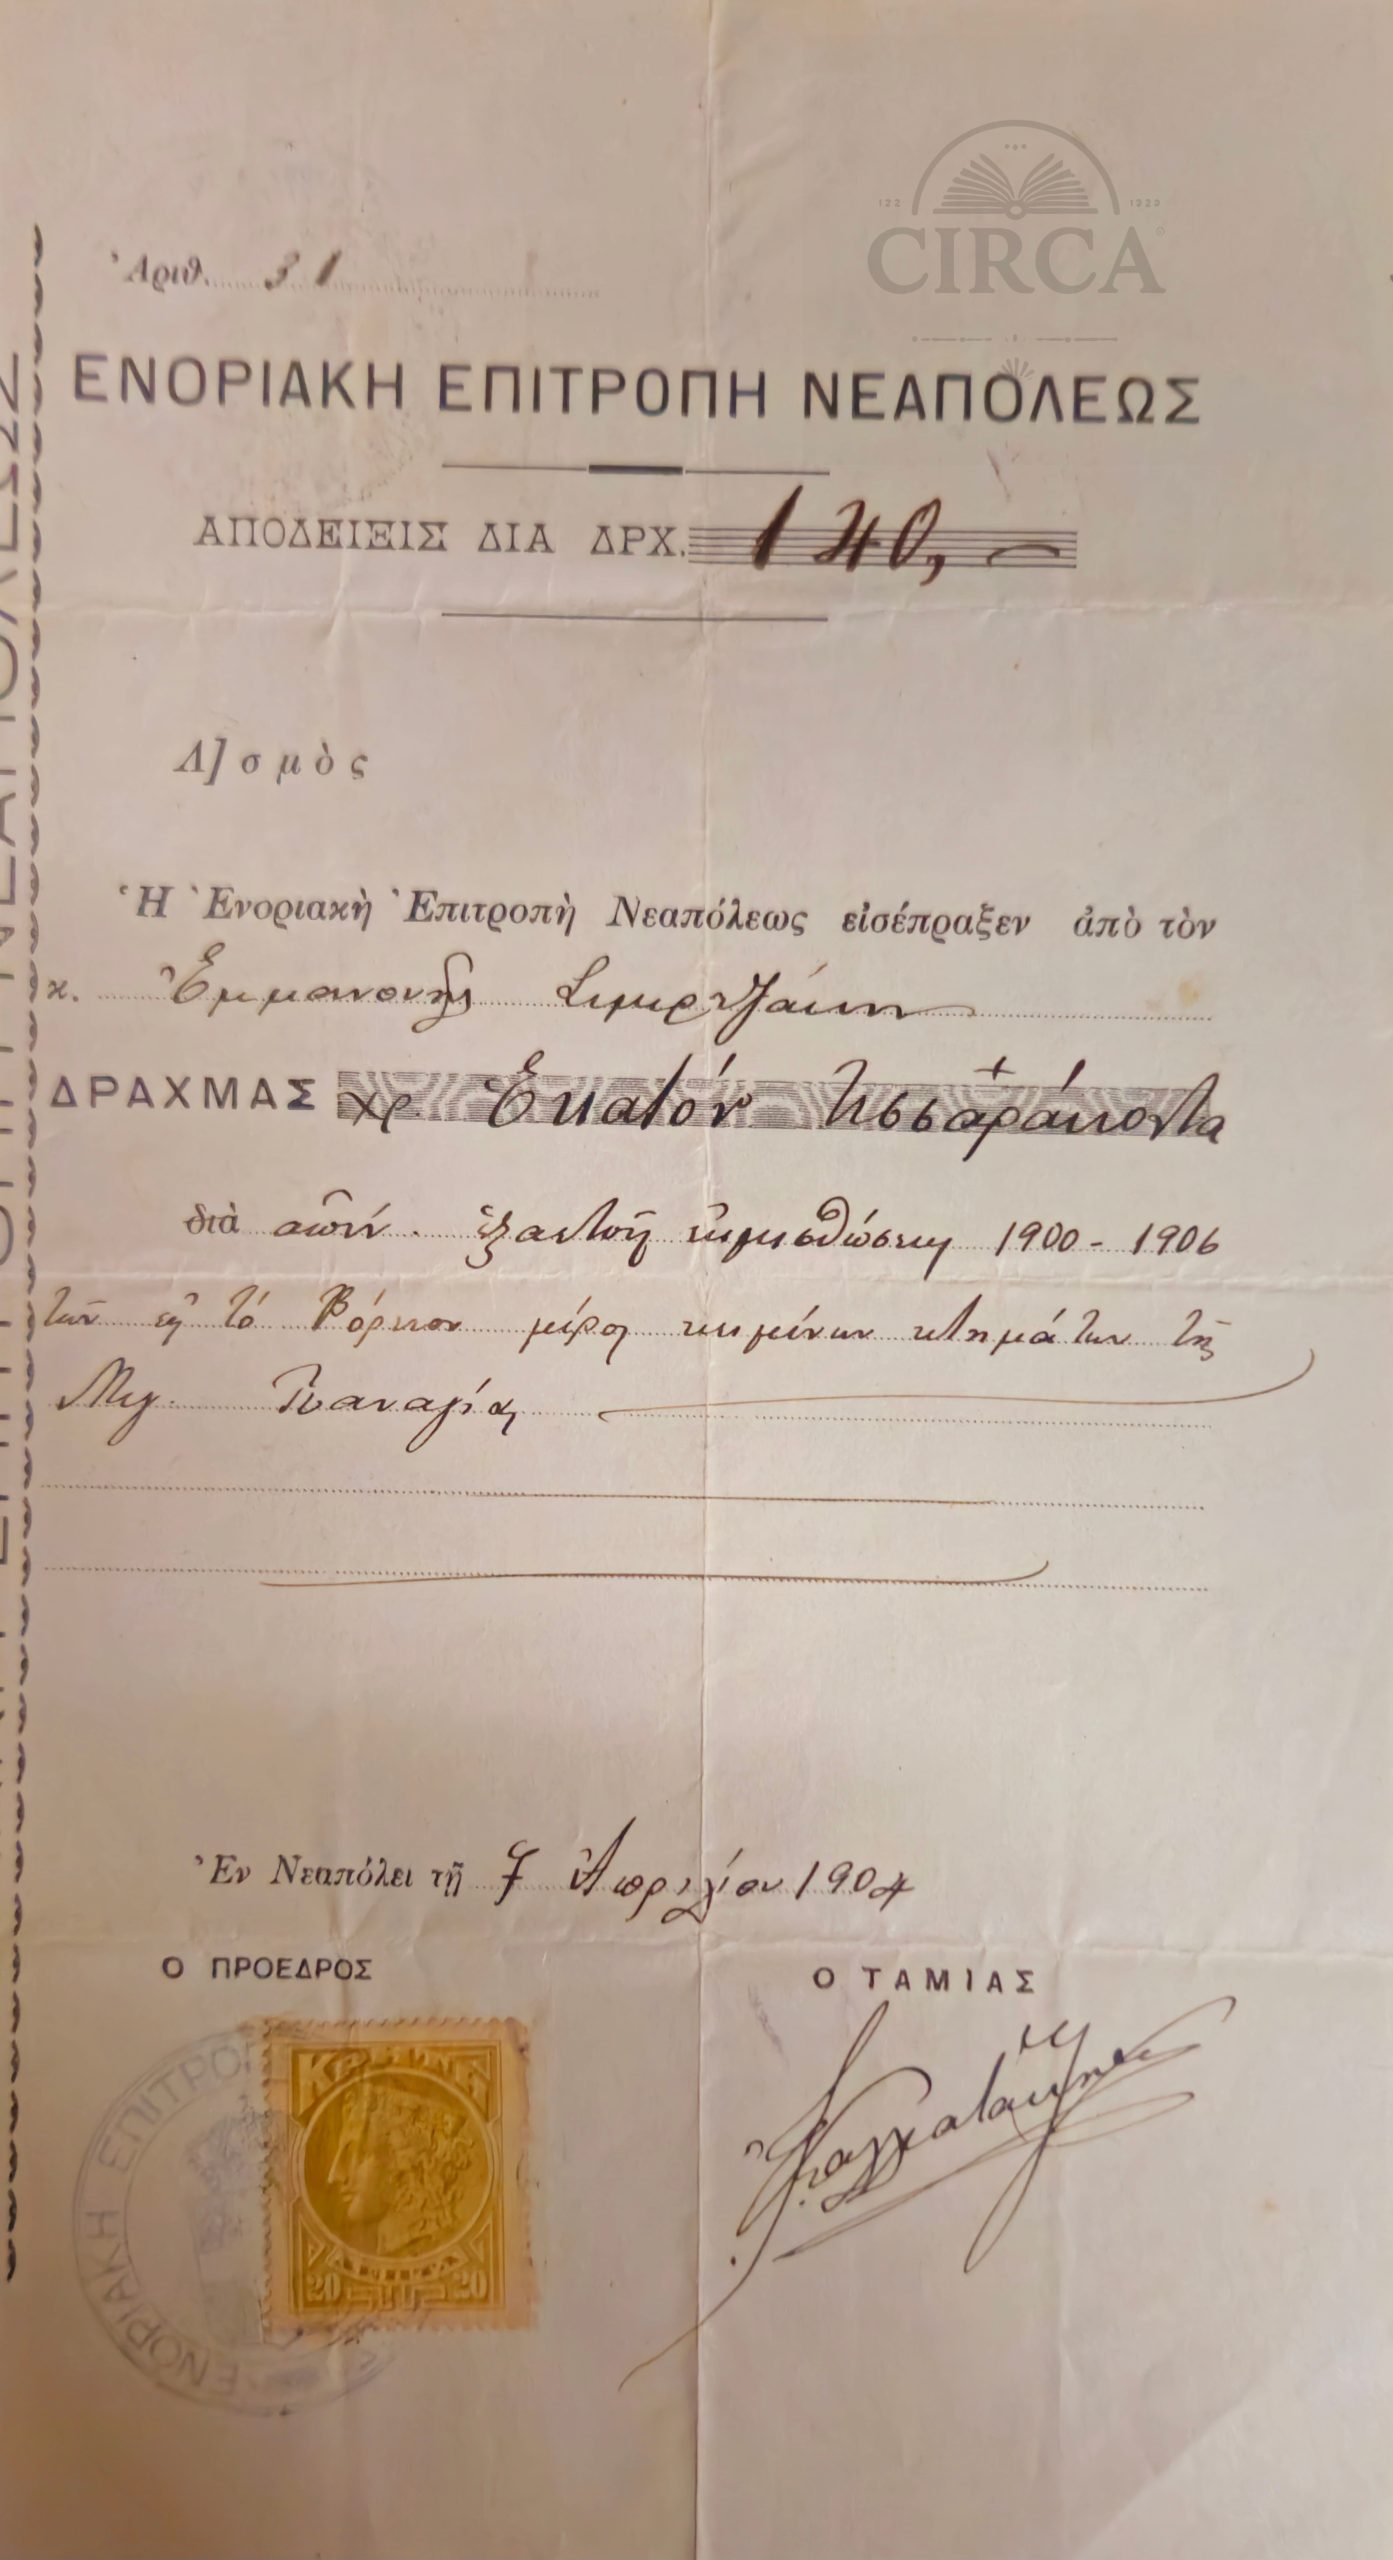 CIRCA
Ἀριθ. 31
ΕΝΟΡΙΑΚΗ ΕΠΙΤΡΟΠΗ ΝΕΑΠΟΛΕΩΣ
ΑΠΟΔΕΙΞΙΣ ΔΙΑ ΔΡΧ. 140,—
Λ]σμὸς
Ἡ Ἐνοριακὴ Ἐπιτροπὴ Νεαπόλεως εἰσέπραξεν ἀπὸ τὸν
κ. Ἐμμανουὴλ
ΔΡΑΧΜΑΣ χρ. Ἑκατόν τεσσαράκοντα
διὰ ἐκμισθώσεως 1900 - 1906
τῶν εἰς τό Βόρειον μέρος κειμένων κτημάτων τῆς
Μεγ. Παναγίας
Ἐν Νεαπόλει τῇ 7 Ἀπριλίου 1904
Ο ΠΡΟΕΔΡΟΣ
Ο ΤΑΜΙΑΣ
ΕΝΟΡΙΑΚΗ ΕΠΙΤΡΟ
ΚΡΗΤΗ
20 20